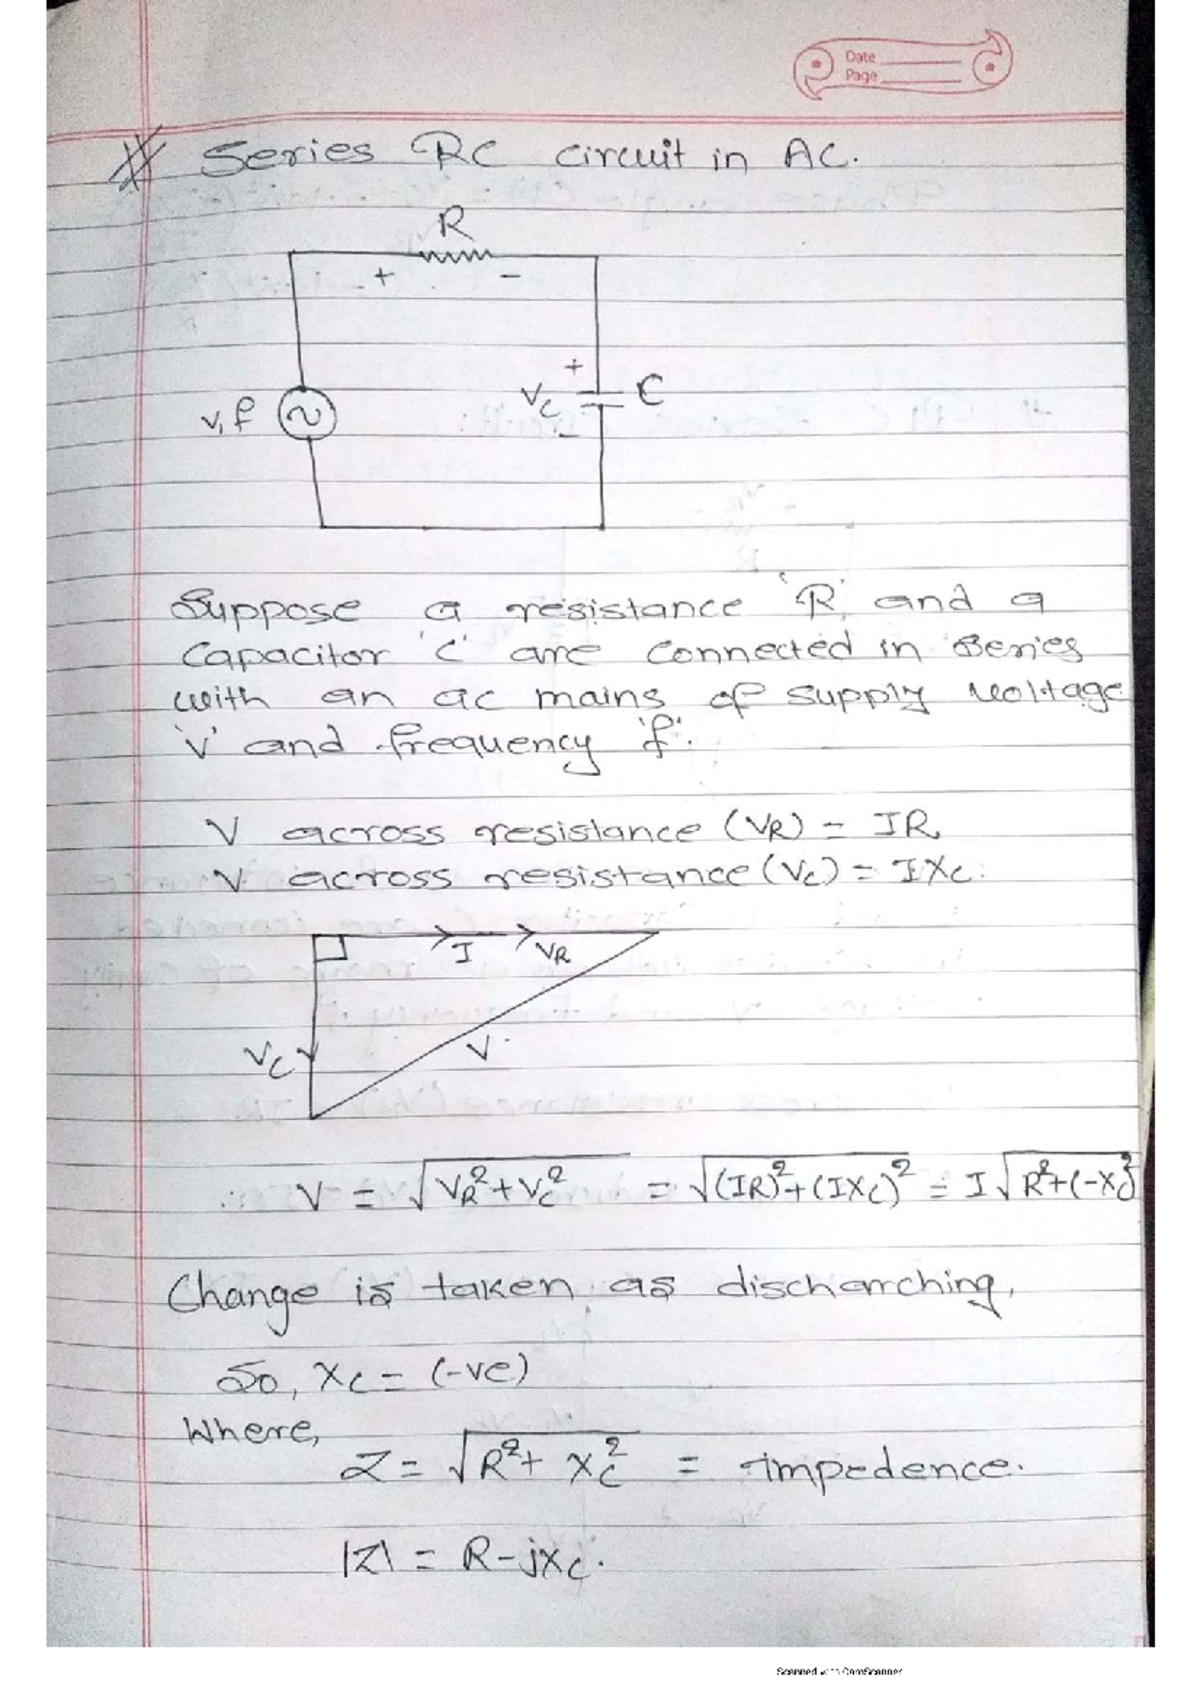 Date
Page
# Series RC circuit in AC.
R
+ -
+
V, f Vc C
-
Suppose a resistance 'R' and a
Capacitor 'C' are connected in series
with an ac mains of supply voltage
'V' and frequency 'f'.
V across resistance (VR) = IR
V across resistance (Vc) = IXc.
I VR
Vc V.
V = √VR²+Vc² = √(IR)²+(IXc)² = I√R²+(-Xc)²
Change is taken as discharching.
So, Xc = (-ve)
Where,
Z = √R²+ Xc² = impedence.
|Z| = R-jXc.
Scanned with CamScanner